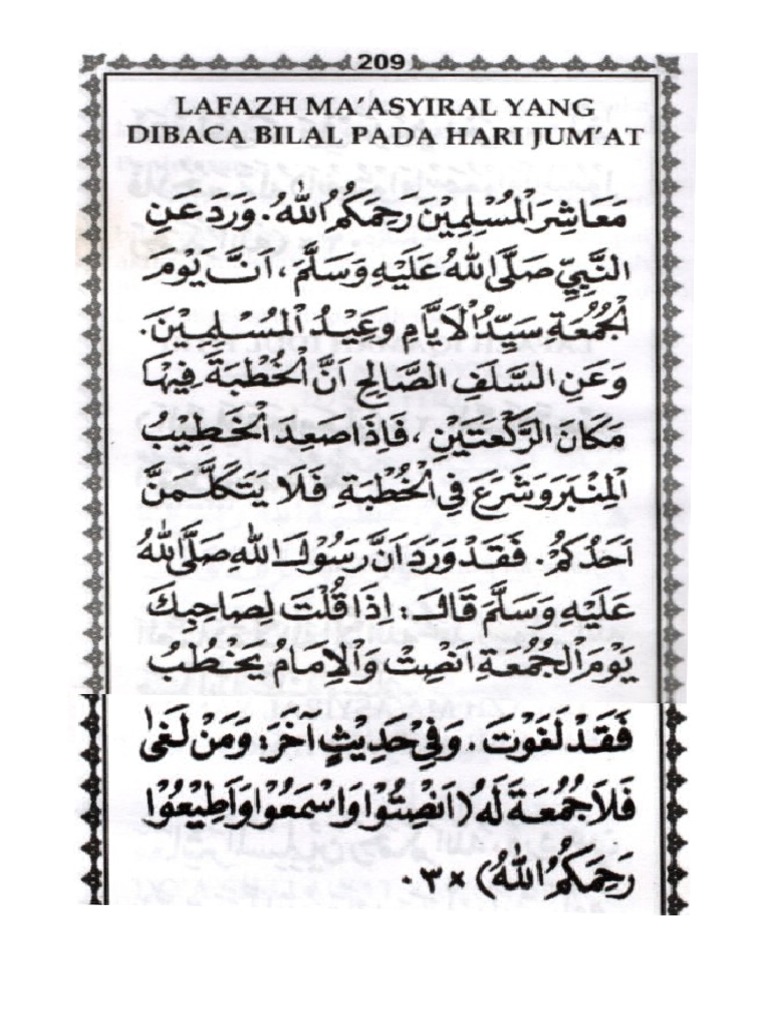 209
LAFAZH MA'ASYIRAL YANG
DIBACA BILAL PADA HARI JUM'AT
مَعَاشِرَ الْمُسْلِمِيْنَ رَحِمَكُمُ اللّٰهُ. وَرَدَ عَنِ
النَّبِيِّ صَلَّى اللّٰهُ عَلَيْهِ وَسَلَّمَ، اَنَّ يَوْمَ
الْجُمُعَةِ سَيِّدُ الْاَيَّامِ وَعِيْدُ الْمُسْلِمِيْنَ.
وَعَنِ السَّلَفِ الصَّالِحِ اَنَّ الْخُطْبَةَ فِيْهَا
مَكَانَ الرَّكْعَتَيْنِ، فَاِذَا صَعِدَ الْخَطِيْبُ
الْمِنْبَرَ وَشَرَعَ فِي الْخُطْبَةِ فَلَا يَتَكَلَّمَنَّ
اَحَدُكُمْ. فَقَدْ وَرَدَ اَنَّ رَسُوْلَ اللّٰهِ صَلَّى اللّٰهُ
عَلَيْهِ وَسَلَّمَ قَالَ: اِذَا قُلْتَ لِصَاحِبِكَ
يَوْمَ الْجُمُعَةِ اَنْصِتْ وَالْاِمَامُ يَخْطُبُ
فَقَدْ لَغَوْتَ. وَفِيْ حَدِيْثٍ آخَرَ: وَمَنْ لَغٰى
فَلَا جُمُعَةَ لَهُ (اَنْصِتُوْا وَاسْمَعُوْا وَاَطِيْعُوْا
رَحِمَكُمُ اللّٰهُ) × ٣.